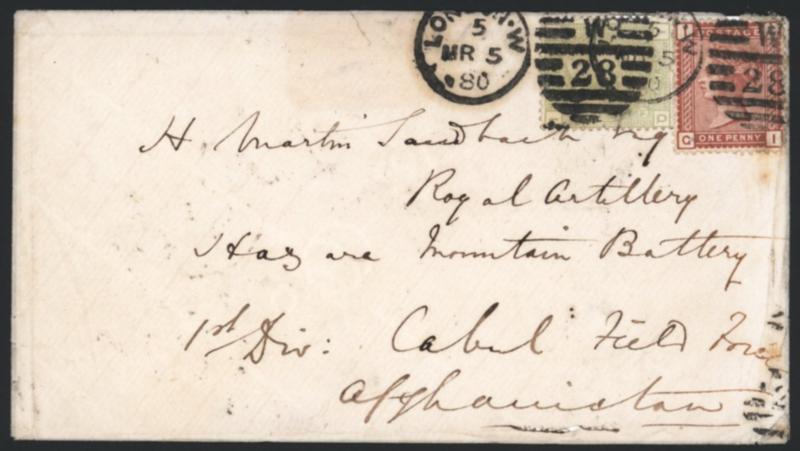 LONDON·W
5
MR 5
80
W
28
W
28
POSTAGE
ONE PENNY
G I
H. Martin Sandbach Esq
Royal Artillery
Hazara Mountain Battery
1st Div: Cabul Field Force
Afghanistan